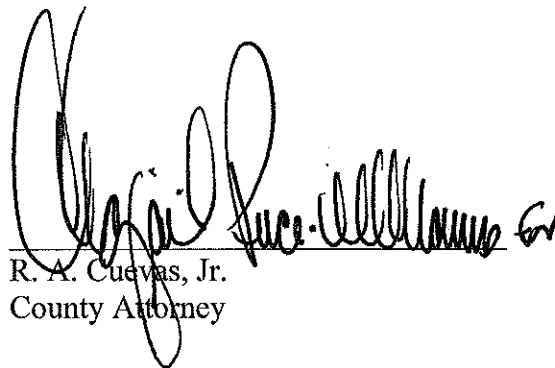 Abigail Price-Williams for
R. A. Cuevas, Jr.
County Attorney